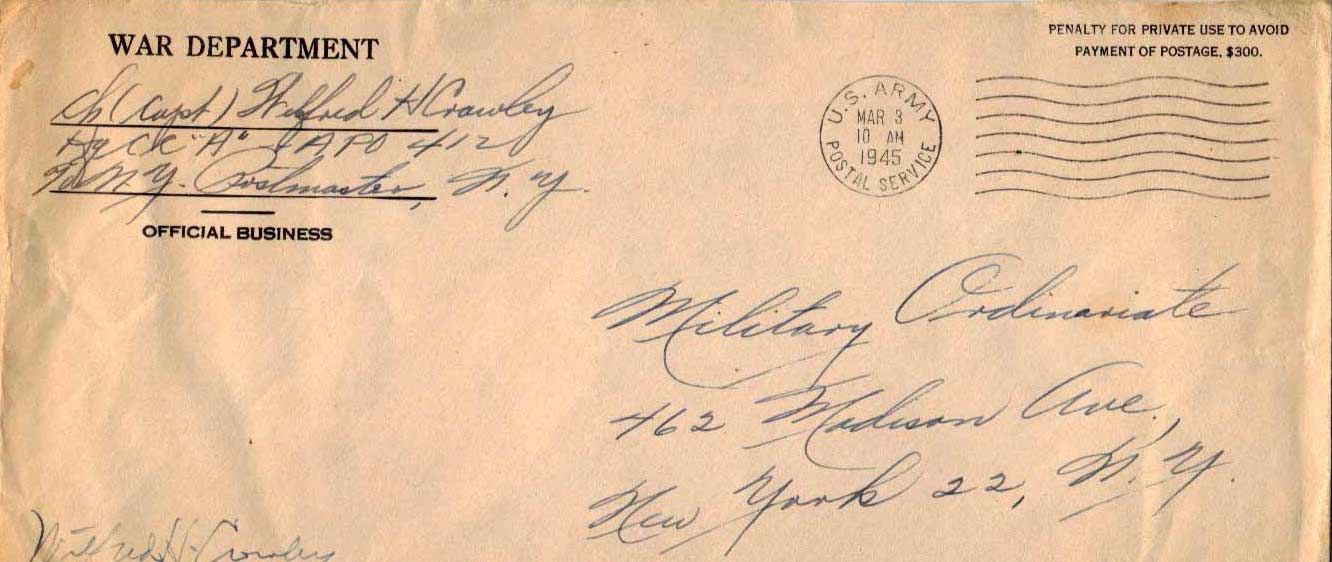 WAR DEPARTMENT
Ch (Capt) Wilfred H Crowley
Hq CC "A" APO 412
N.Y. Postmaster, N.Y.
OFFICIAL BUSINESS
PENALTY FOR PRIVATE USE TO AVOID
PAYMENT OF POSTAGE, $300.
U.S. ARMY
MAR 3
10 AM
1945
POSTAL SERVICE
Military Ordinariate
462 Madison Ave.,
New York 22, N.Y.
Wilfred H. Crowley